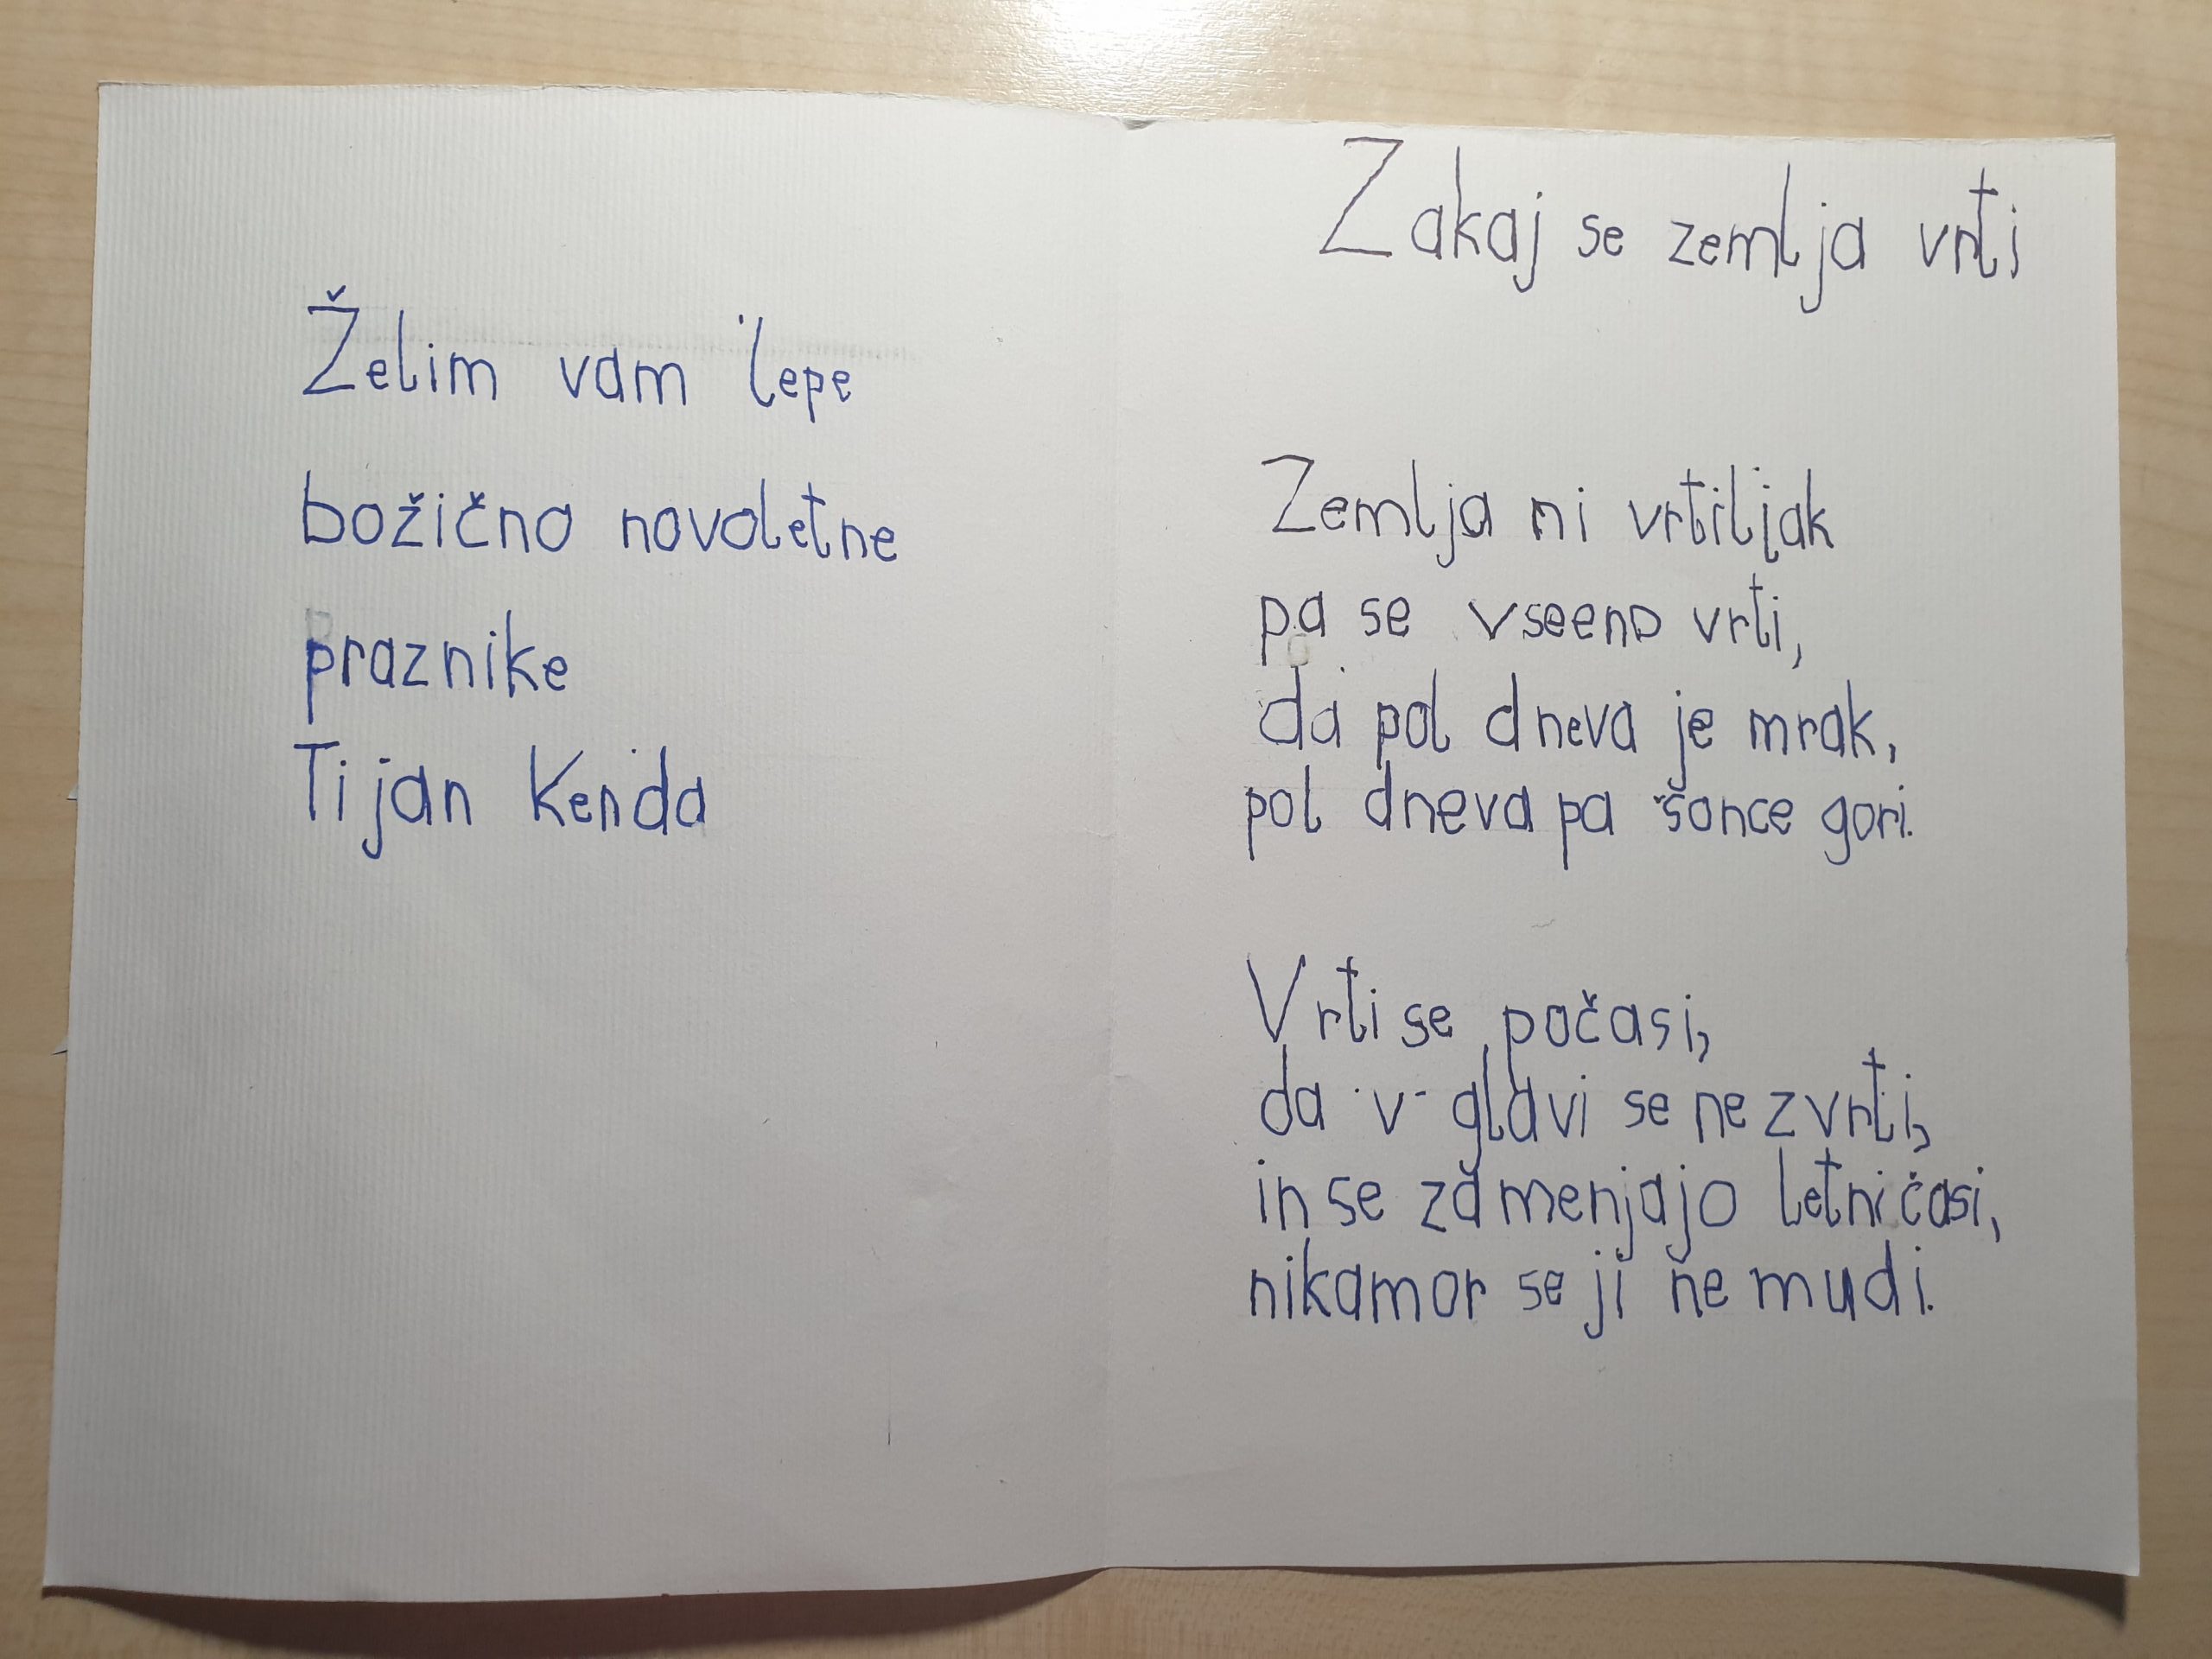 Želim vam lepe
božično novoletne
praznike
Tijan Kenda
Zakaj se zemlja vrti
Zemlja ni vrtiljak
pa se vseeno vrti,
da pol dneva je mrak,
pol dneva pa šonce gori.
Vrti se počasi,
da v glavi se ne zvrti,
in se zamenjajo letni časi,
nikamor se ji ne mudi.